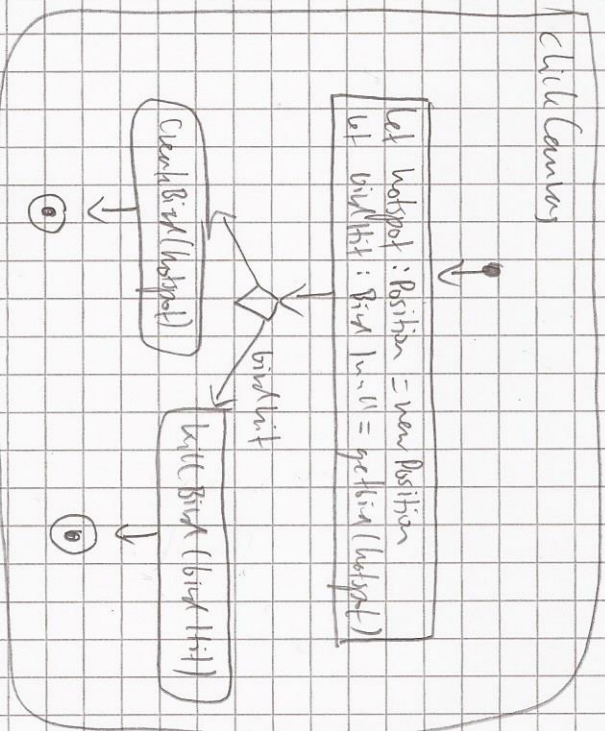 clickCanvas
let hotspot : Position = new Position
let birdHit : Bird | null = getBird (hotspot)
birdhit
CreateBird (hotspot)
killBird (birdHit)